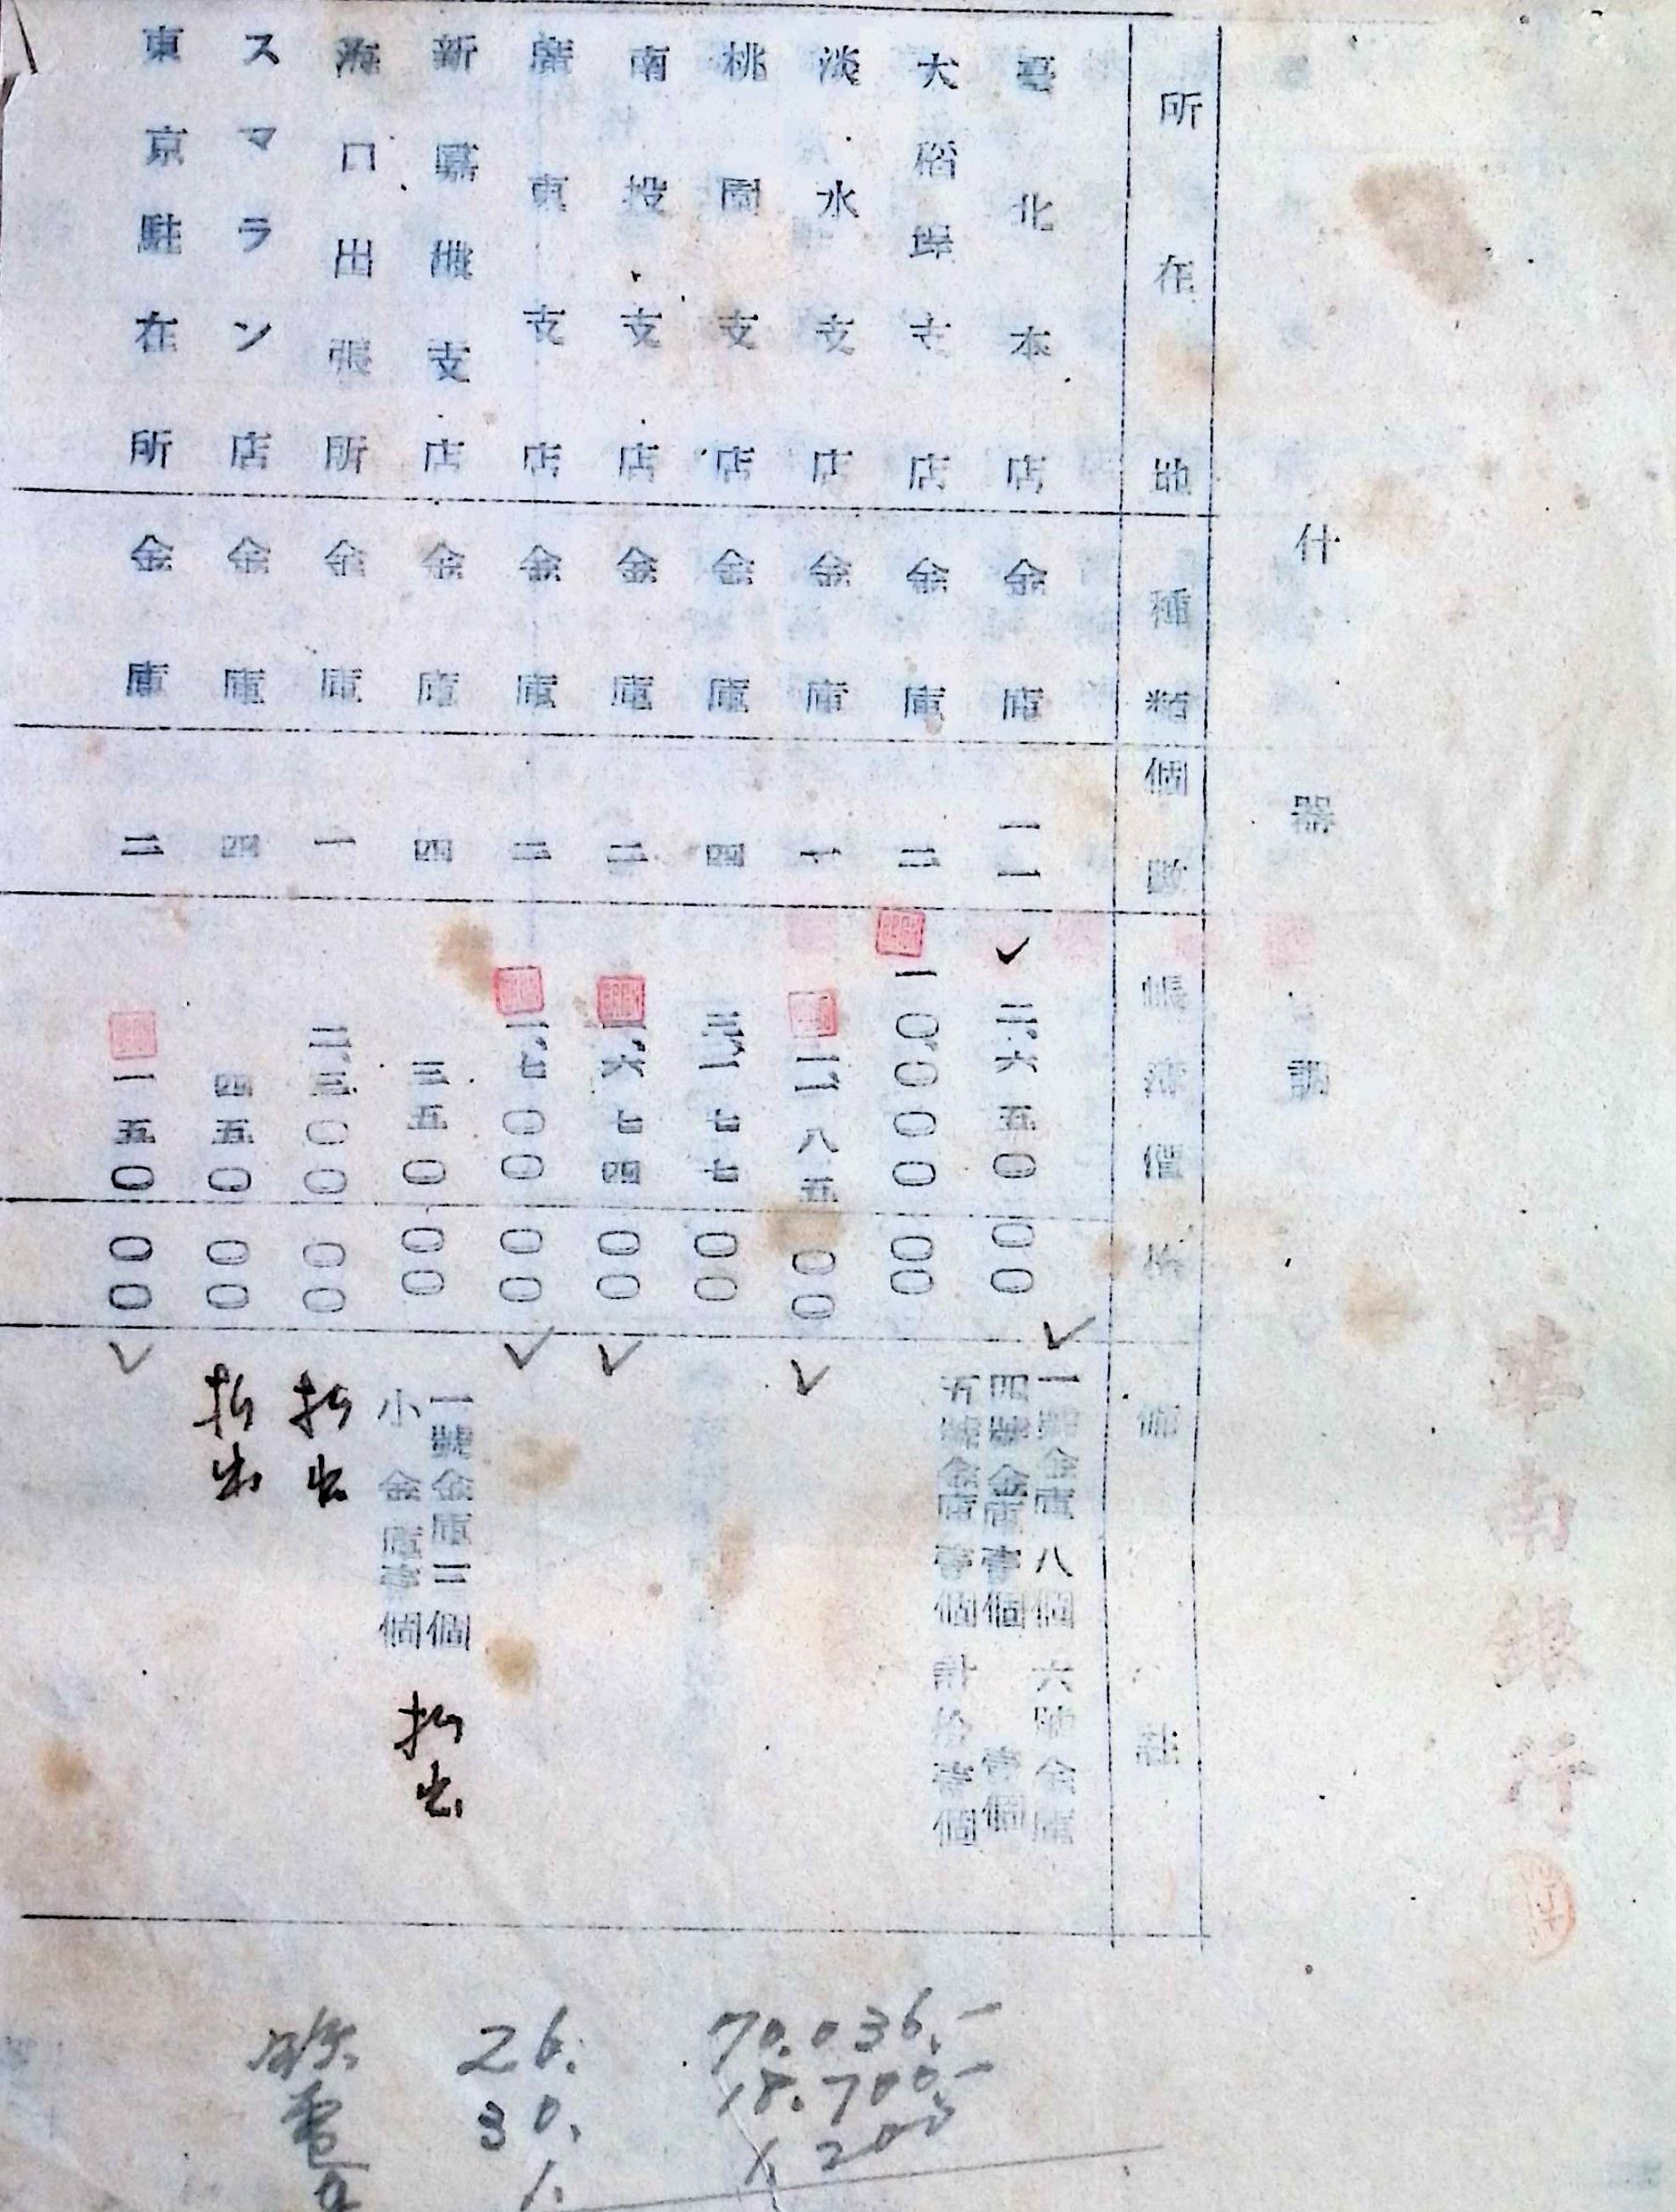 華南銀行
什器調
所在地 種類 個數 帳簿價格 備
臺北本店 金庫 一一 二、六五〇 〇〇 一號金庫八個 六號金庫壹個
四號金庫壹個
五號金庫壹個 計拾壹個
大稻埕支店 金庫 一〇、〇〇〇 〇〇
淡水支店 金庫 一 八五 〇〇
桃園支店 金庫 四 七七 〇〇
南投支店 金庫 二 六七四 〇〇
廣東支店 金庫 二 七〇〇 〇〇
新嘉坡支店 金庫 四 三五〇 〇〇 一號金庫三個 払出
小金庫壹個
海口出張所 金庫 一 二、三〇〇 〇〇 払出
スマラン店 金庫 四 四五〇 〇〇 払出
東京駐在所 金庫 二 一五〇 〇〇
26. 70.036.-
30. 18.700.-
1. 1.200